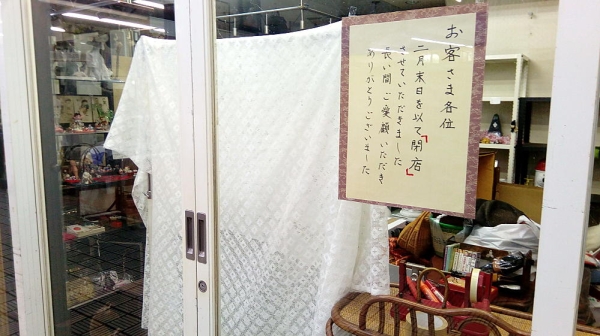 お客さま各位
二月末日を以て「閉店」
させていただきました
長い間ご愛顧いただき
ありがとうございました